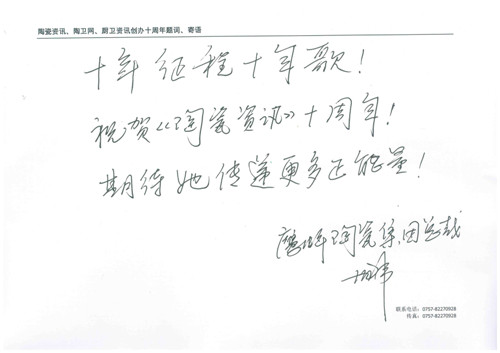 陶瓷资讯、陶卫网、厨卫资讯创办十周年题词、寄语
十年征程十年歌！
祝贺《陶瓷资讯》十周年！
期待她传递更多正能量！
陶瓷集团总裁
联系电话：0757-82270928
传真：0757-82270928